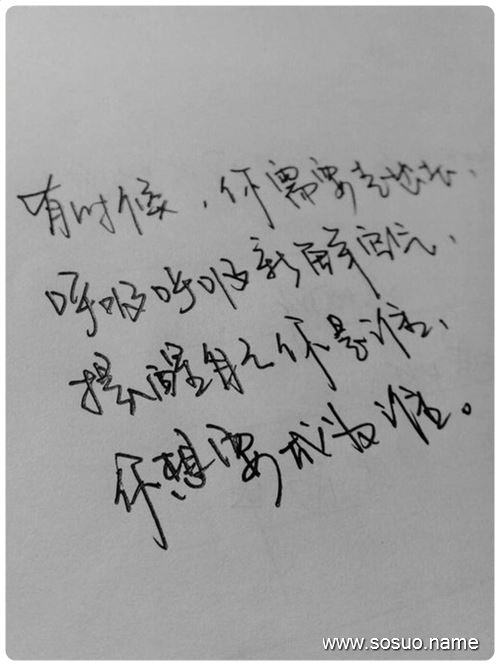 有时候，你需要走出去、
呼吸呼吸新鲜空气、
提醒自己你是谁、
你想要成为谁。
www.sosuo.name